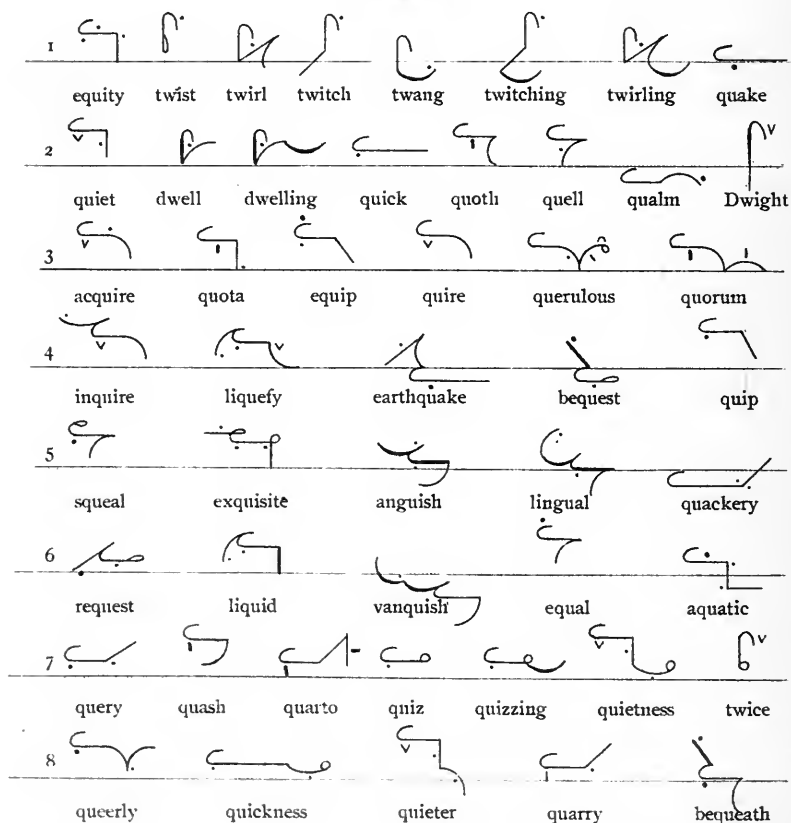 1
equity twist twirl twitch twang twitching twirling quake
2
quiet dwell dwelling quick quoth quell qualm Dwight
3
acquire quota equip quire querulous quorum
4
inquire liquefy earthquake bequest quip
5
squeal exquisite anguish lingual quackery
6
request liquid vanquish equal aquatic
7
query quash quarto qniz quizzing quietness twice
8
queerly quickness quieter quarry bequeath